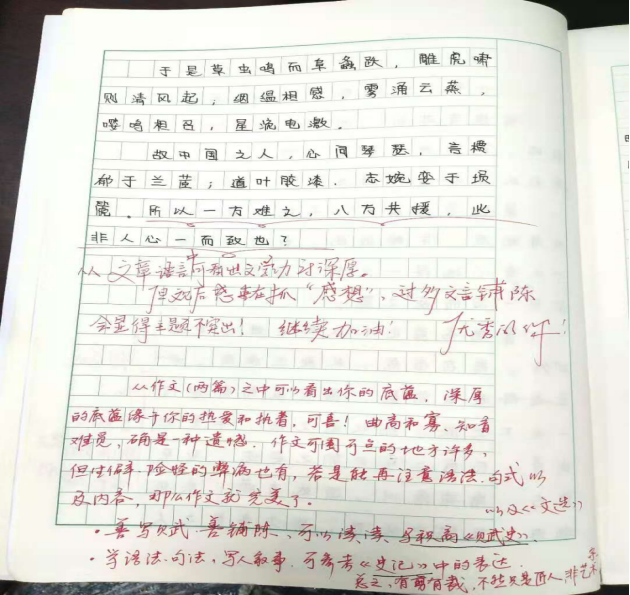 于是草虫鸣而阜螽跃，雕虎啸
则清风起；烟煴相感，雾涌云蒸，
嘤鸣相召，星流电激。
故中国之人，心同琴瑟，言郁
郁于兰茝；道叶胶漆，志婉娈于埙
篪。所以一方难之，八方共援，此
非人心一而致也？
从文章语言中可看出文学功底深厚。
但观后感重在抓“感想”，过多文言铺陈
会显得主题不突出！ 继续加油！ 优秀的
从作文(两篇)之中可以看出你的底蕴，深厚
的底蕴缘于你的热爱和执着，可喜！曲高和寡、知音
难觅，确是一种遗憾。作文可圈可点的地方许多，
但生僻、险怪的弊病也有，若是能再注意语法、句式以
及内容，那么作文就完美了。
以及《文选》
·善写赋，善铺陈、可以读读马积高《赋史》
·学语法、句法，写人叙事，可参考《史记》中的表达。
为文，有剪有裁，不然只是匠人非艺术